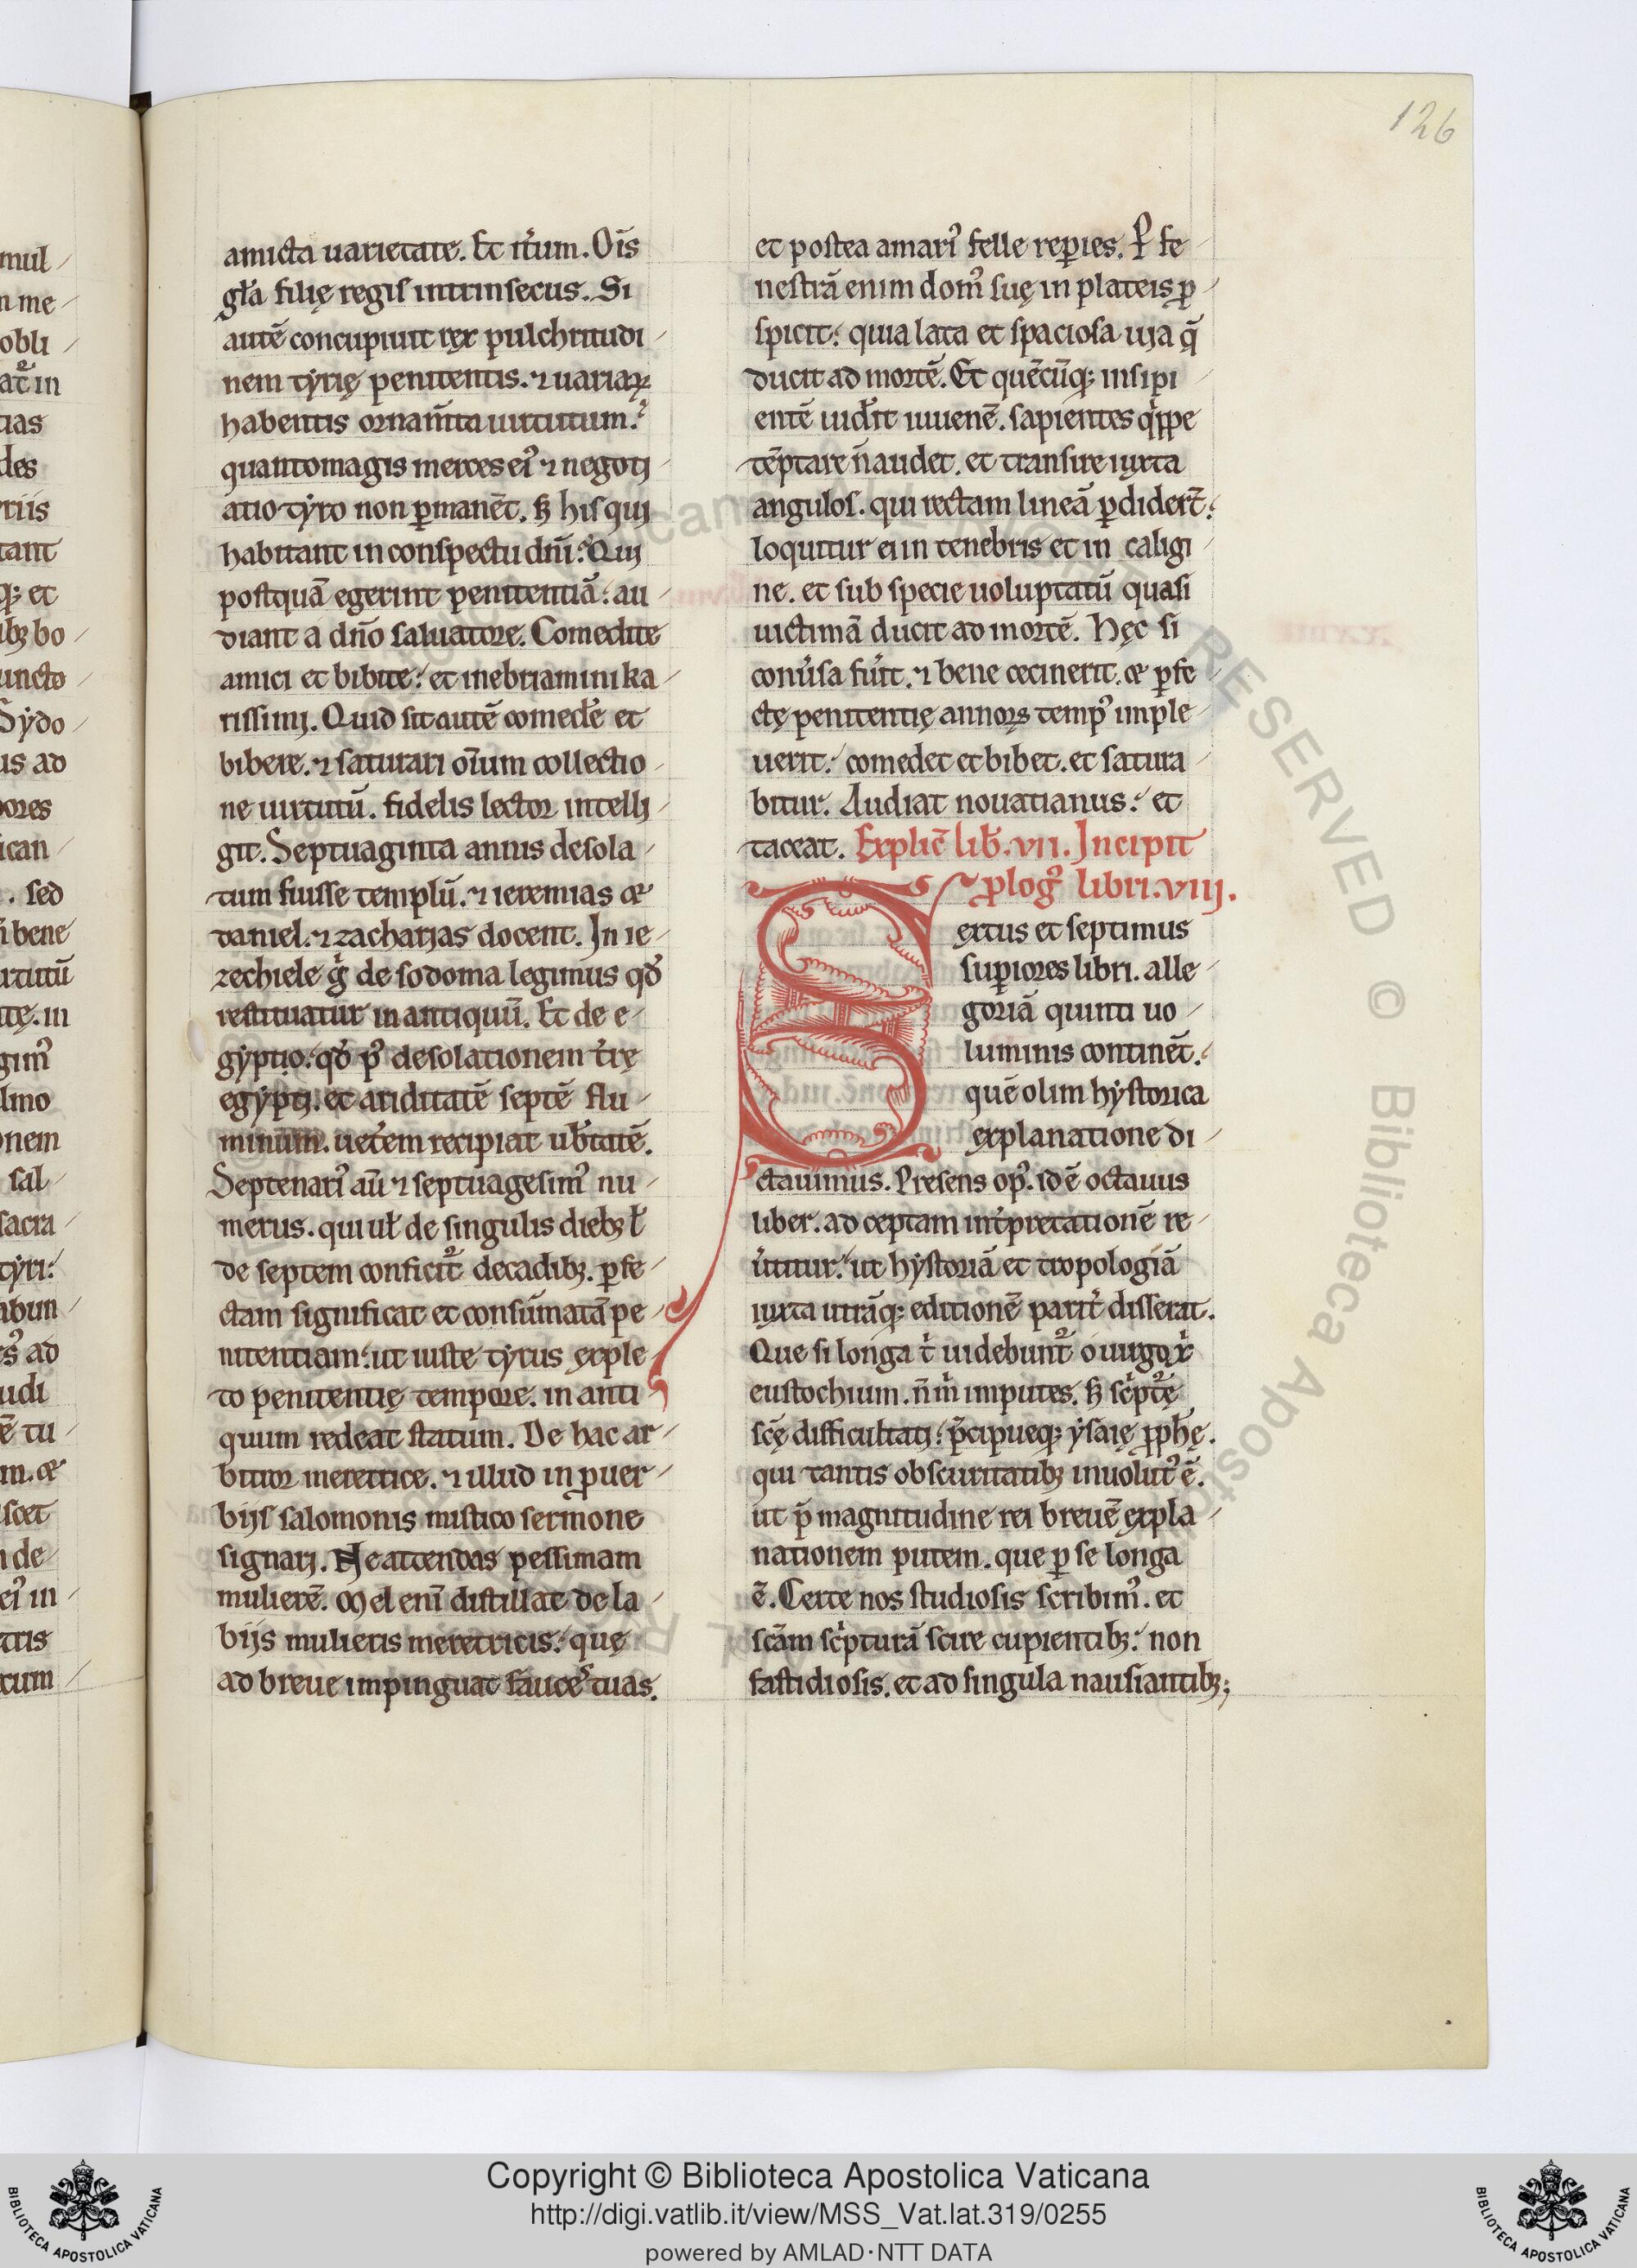 126
amicta uarietate. Et it̓um. Oīs
gła filię regis intrinsecus. Si
autē concupiuit rex pulchritudi
nem tyrię penitentis. ⁊ uariaꝝ
habentis ornam̄ta uirtutum.
quantomagis merces ei᾿ ⁊ negoti
atio tyro non ꝑmanēt. sꝫ his qui
habitant in conspectu dn̄i. Qui
postquā egerint penitentiā. au
diant a dn̄o saluatore. Comedite
amici et bibite. et inebriamini ka
rissimi. Quid sit autē comed̓e et
bibere. ⁊ saturari oīum collectio
ne uirtutū. fidelis lector intelli
git. Septuaginta annis desola
tum fuisse templū. ⁊ ieremias et
daniel. ⁊ zacharias docent. In ie
zechiele g̊ de sodoma legimus qđ
restituatur in antiquū. Et de e
gypto. qđ p᾿ desolationem t̓rę
egypti. et ariditatē septē flu
minum. uet̓em recipiat ub̓tatē.
Septenari᾿ aū ⁊ septuagesim᾿ nu
merus. qui uł de singulis diebꝫ ł
de septem conficit᾿ decadibꝫ. ꝑfe
ctam significat et consūmatā pe
nitentiam. ut iuste tyrus exple
to penitentię tempore. in anti
quum redeat statum. De hac ar
bitror meretrice. ⁊ illud in prouer
bijs salomonis mistico sermone
signari. Ne attendas pessimam
mulierē. Mel enī distillat de la
bijs mulieris meretricis. quę
ad breue impinguat fauces tuas.
et postea amari᾿ felle reꝑies. P fe
nestrā enim dom᾿ suę in plateis ꝓ
spicit. quia lata et spaciosa uia q̄
ducit ad mortē. Et quēcūqꝫ insipi
entē uid̓it iuuenē. sapientes q̓ppe
tēptare n̄ audet. et transire iuxta
angulos. qui rectam lineā ꝑdider̄t.
loquitur ei in tenebris et in caligi
ne. et sub specie uoluptatū quasi
uictimā ducit ad mortē. Hęc si
conu̓sa fu̓it. ⁊ bene cecinerit. et ꝑfe
ctę penitentię annorꝫ temp᾿ imple
uerit. comedet et bibet. et satura
bitur. Audiat nouatianus. et
taceat. Explic̄ lib̓. vii. Incipit
ꝓlog᾿ libri. viij.
Sextus et septimus
suꝑiores libri. alle
goriā quinti uo
luminis continēt.
quē olim hystorica
explanatione di
ctauimus. Presens op᾿. id ē octauus
liber. ad ceptam int̓pretationē re
u̓titur. ut hystoriā et tropologiā
iuxta utrāqꝫ editionē parit̓ disserat.
Que si longa t̓ uidebunt᾿ o uirgo xp̓i
eustochium. n̄ m̓ imputes. sꝫ sc̓ptę
scę difficultati. p̄cipueqꝫ ysaię ꝓphę.
qui tantis obscuritatibꝫ inuolut᾿ ē.
ut p̄ magnitudine rei breuē expla
nationem putem. que ꝑ se longa
ē. Certe nos studiosis scribim᾿. et
scām sc̓pturā scire cupientibꝫ. non
fastidiosis. et ad singula nausiantibꝫ;
Copyright © Biblioteca Apostolica Vaticana
http://digi.vatlib.it/view/MSS_Vat.lat.319/0255
powered by AMLAD·NTT DATA
BIBLIOTECA APOSTOLICA VATICANA
BIBLIOTECA APOSTOLICA VATICANA